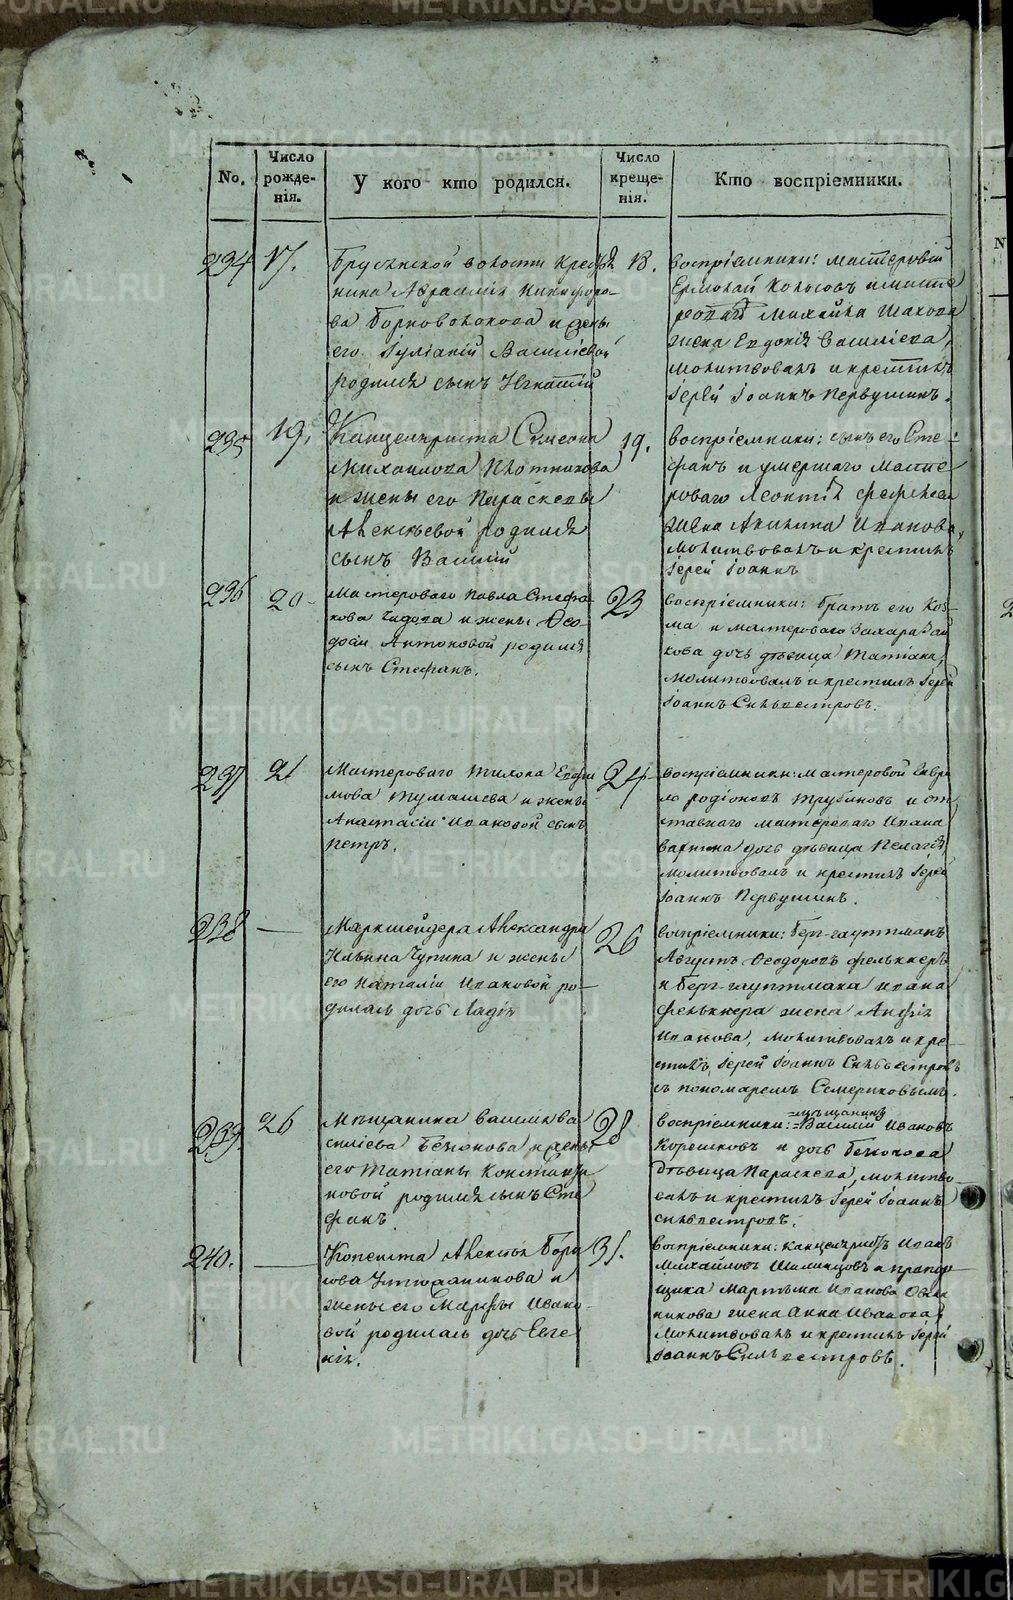 No.
Число рожденія.
У кого кто родился.
Число крещенія.
Кто воспріемники.
234
17.
Брусянской волости крестья
нина Аврамія Никифоро-
ва Борноволокова и жены
его Іуліаніи Василіевой
родился сынъ Игнатій
18.
воспріемники: мастеровый
Ермолай Колосовъ и масте
роваго Михаила Шахова
жена Евдокія Василіева,
молитвовалъ и крестилъ
Іерей Іоаннъ Первушинъ.
235
19.
Канцеляриста Симеона
Михайлова Плотникова
и жены его Параскевы
Алексѣевой родился
сынъ Василій
19.
воспріемники: сынъ его Сте-
фанъ и умершаго масте
роваго Леонтія
жена Акилина Иванова,
молитвовалъ и крестилъ
Іерей Іоаннъ
236
20-
Мастероваго Павла Стефа
нова и жены Ѳео-
досіи Антоновой родился
сынъ Стефанъ.
23
воспріемники: братъ его Коз-
ма и мастероваго Захара Зай
кова дочь дѣвица Татіана,
молитвовалъ и крестилъ Іерей
Іоаннъ Сильвестровъ.
237
21
Мастероваго Тихона Евфи
мова Тумашева и жены
Анастасіи Ивановой сынъ
Петръ.
24
воспріемники: мастеровой Гаври
ло Родіоновъ Трубиновъ и от
ставнаго мастероваго Ивана
дочь дѣвица Пелагія,
молитвовалъ и крестилъ Іерей
Іоаннъ Первушинъ.
238
—
Маркшейдера Александра
Ильина Чупина и жены
его Наталіи Ивановой ро-
дилась дочь Лидія
26
воспріемники: Берг-гауптманъ
Августъ Ѳеодоровъ Фелькнеръ
и Берг-гауптмана Ивана
Фелькнера жена Анфія
Иванова, молитвовалъ и кре-
стилъ Іерей Іоаннъ Сильвестровъ
съ пономаремъ Семериковымъ.
239.
26
Мѣщанина Василія Ва
силіева и жены
его Татіаны Константи
новой родился сынъ Сте
фанъ.
28
=мѣщанинъ
воспріемники:=Василій Ивановъ
Корешковъ и дочь
дѣвица Параскева, молитво-
валъ и крестилъ Іерей Іоаннъ
Сильвестровъ.
240.
—
Копеиста Алексѣя Бори
сова Утюшникова и
жены его Марѳы Ивано-
вой родилась дочь Евге
нія.
31.
воспріемники: канцеляристъ Иванъ
Михайловъ и прапор-
щика Мартына Иванова Овчи
никова жена Анна Иванова,
молитвовалъ и крестилъ Іерей
Іоаннъ Сильвестровъ.
METRIKI.GASO-URAL.RU